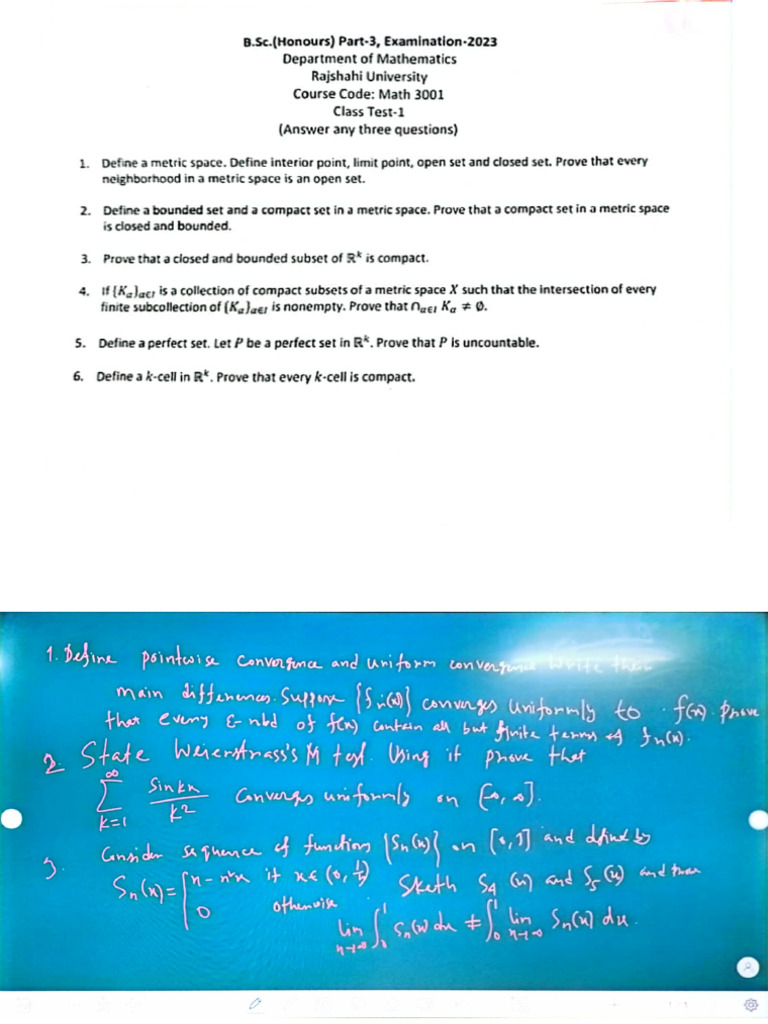 B.Sc.(Honours) Part-3, Examination-2023
Department of Mathematics
Rajshahi University
Course Code: Math 3001
Class Test-1
(Answer any three questions)
1. Define a metric space. Define interior point, limit point, open set and closed set. Prove that every
neighborhood in a metric space is an open set.
2. Define a bounded set and a compact set in a metric space. Prove that a compact set in a metric space
is closed and bounded.
3. Prove that a closed and bounded subset of ℝᵏ is compact.
4. If {Kα}α∈I is a collection of compact subsets of a metric space X such that the intersection of every
finite subcollection of {Kα}α∈I is nonempty. Prove that ∩α∈I Kα ≠ ∅.
5. Define a perfect set. Let P be a perfect set in ℝᵏ. Prove that P is uncountable.
6. Define a k-cell in ℝᵏ. Prove that every k-cell is compact.
1. Define pointwise convergence and uniform convergence write their
main differences. Suppose {fn(x)} converges uniformly to f(x). Prove
that every ε-nbd of f(x) contain all but finite terms of fn(x).
2. State Weierstrass's M test. Using it prove that
∞∑k=1 sin kx / k² converges uniformly on
3. Consider sequence of function {Sn(x)} on [0,1] and defined by
Sn(x) = { n - n²x if x ∈ (0, 1/n) Sketh S4(x) and S5(x) and
0 otherwise
lim n→∞ ∫₀¹ Sn(x) dx ≠ ∫₀¹ lim n→∞ Sn(x) dx.